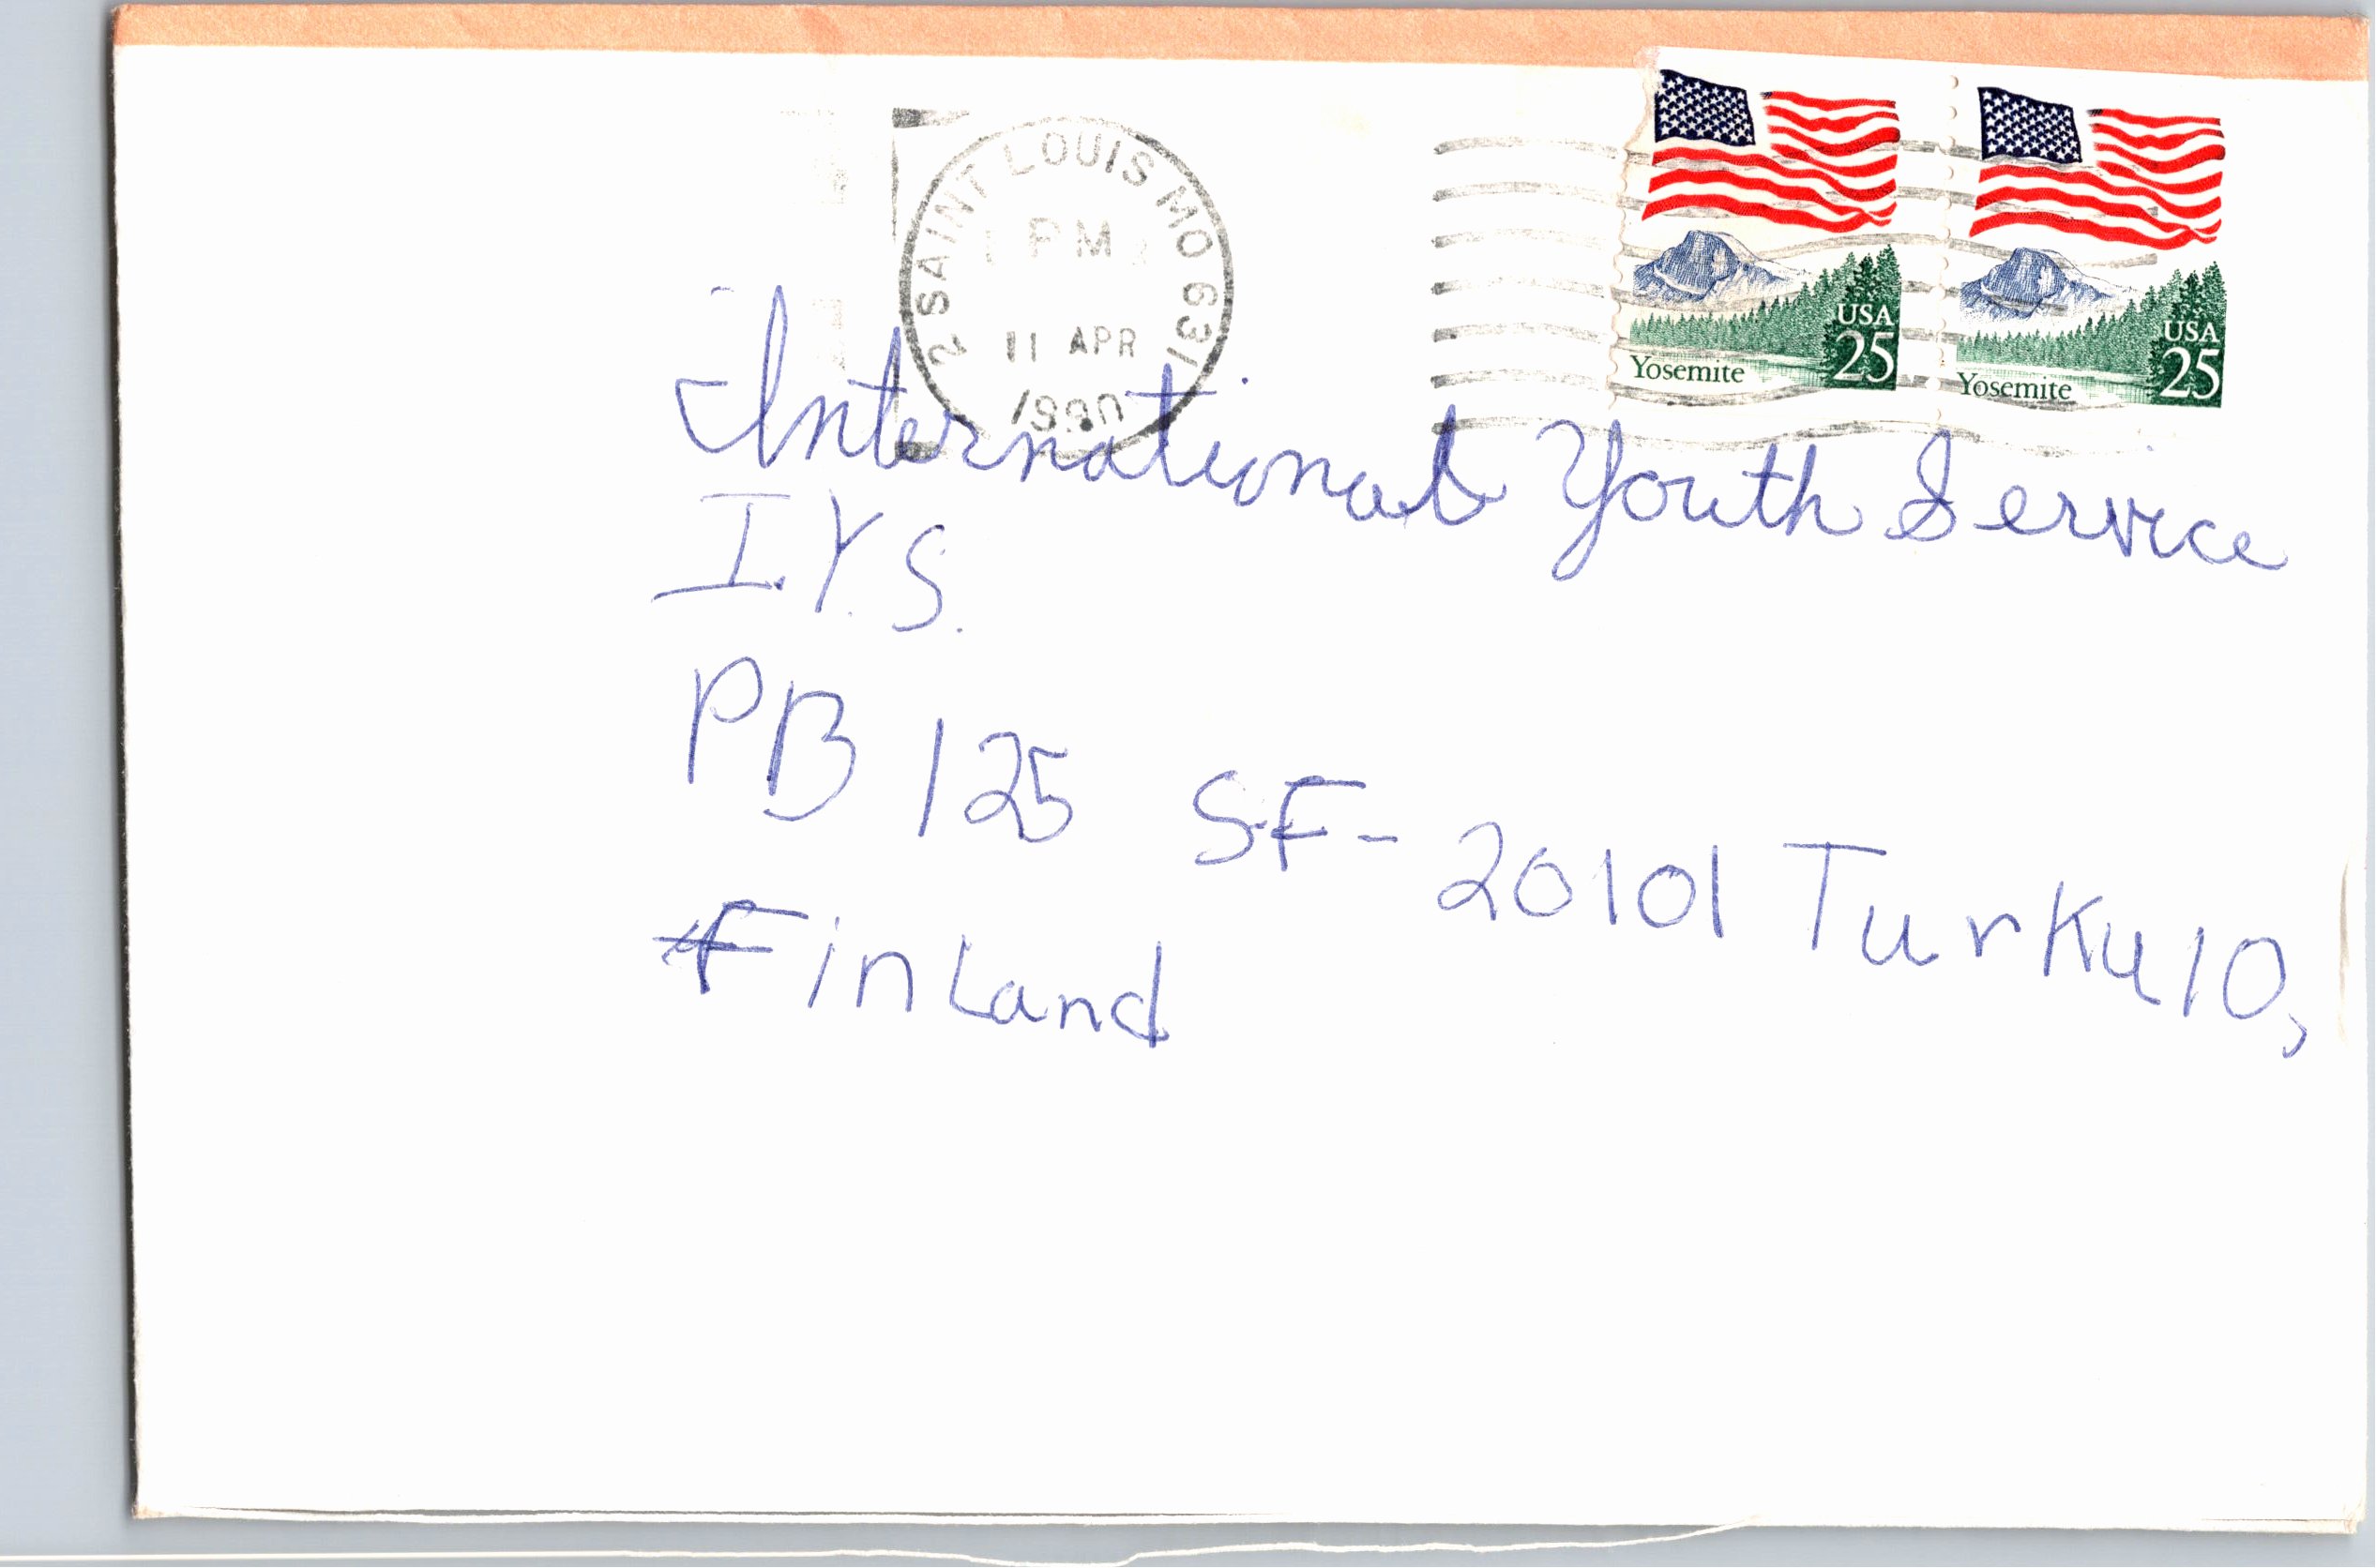 SAINT LOUIS MO 631
PM
11 APR
1990
USA
25
Yosemite
USA
25
Yosemite
International Youth Service
I.Y.S.
PB 125 SF-20101 Turku 10,
Finland